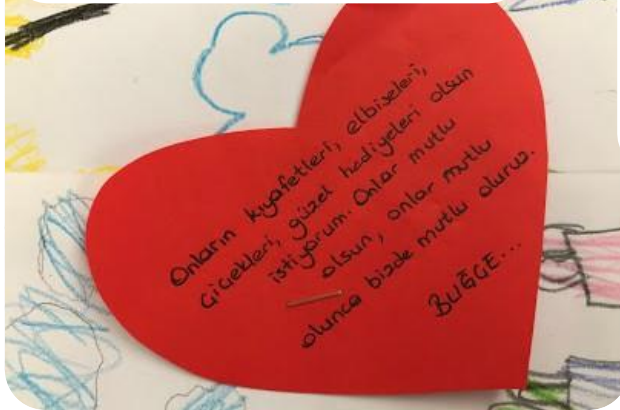 Onların kıyafetleri, elbiseleri,
çiçekleri, güzel hediyeleri olsun
istiyorum. Onlar mutlu
olsun, onlar mutlu
olunca bizde mutlu oluruz.
BUĞÇE...